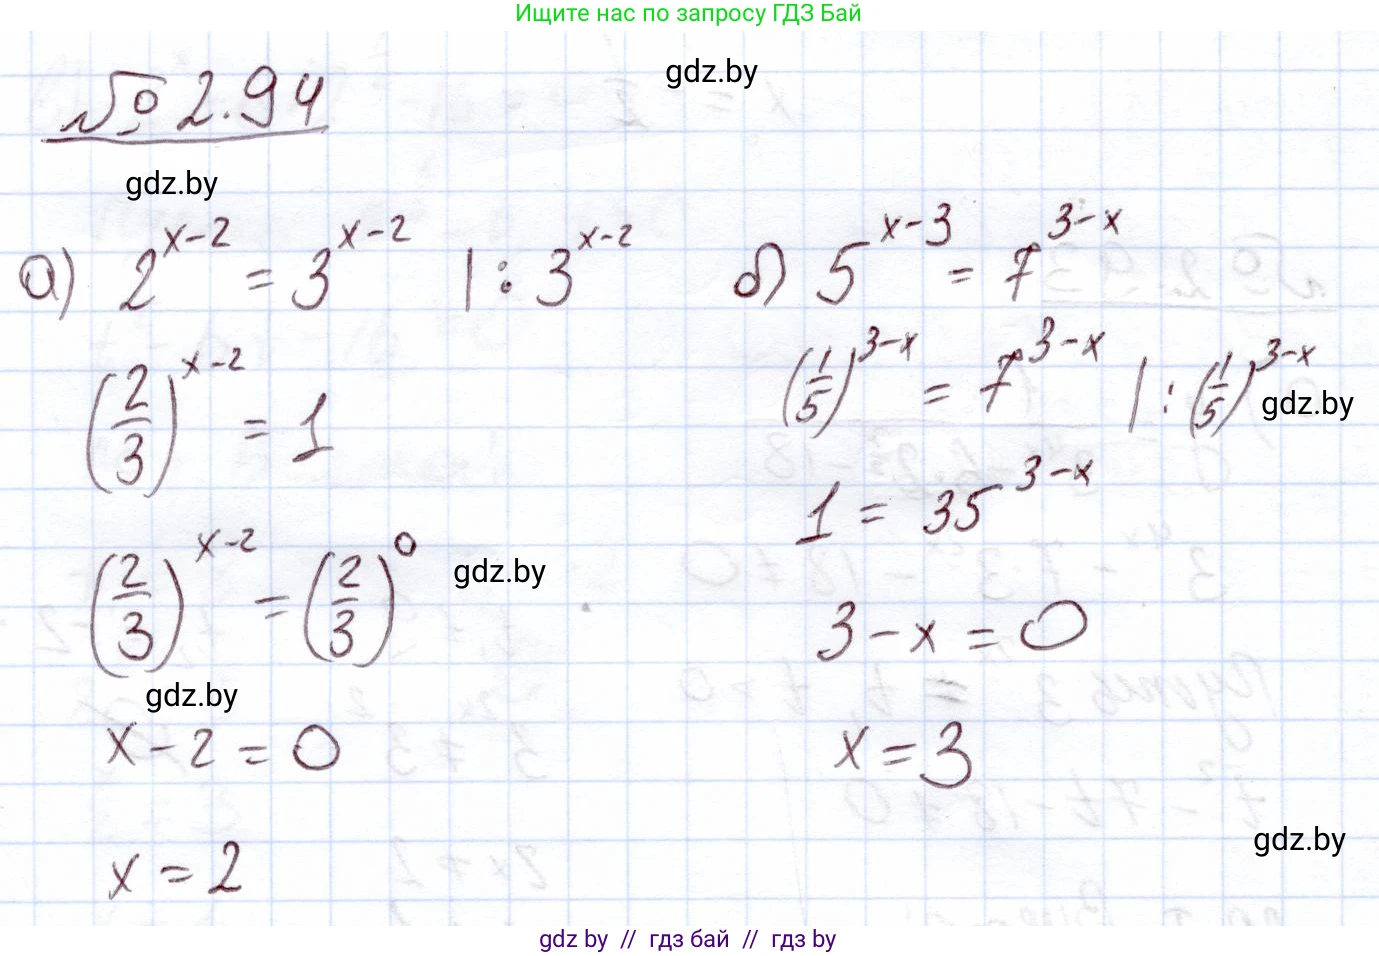 Ищите нас по запросу ГДЗ Бай
№ 2.94
gdz.by
gdz.by
а) 2^{x-2} = 3^{x-2} | : 3^{x-2}
(2/3)^{x-2} = 1
(2/3)^{x-2} = (2/3)^0
gdz.by
gdz.by
x - 2 = 0
x = 2
б) 5^{x-3} = 7^{3-x}
(1/5)^{3-x} = 7^{3-x} | : (1/5)^{3-x}
gdz.by
1 = 35^{3-x}
3 - x = 0
x = 3
gdz.by
gdz by // гдз бай // гдз by